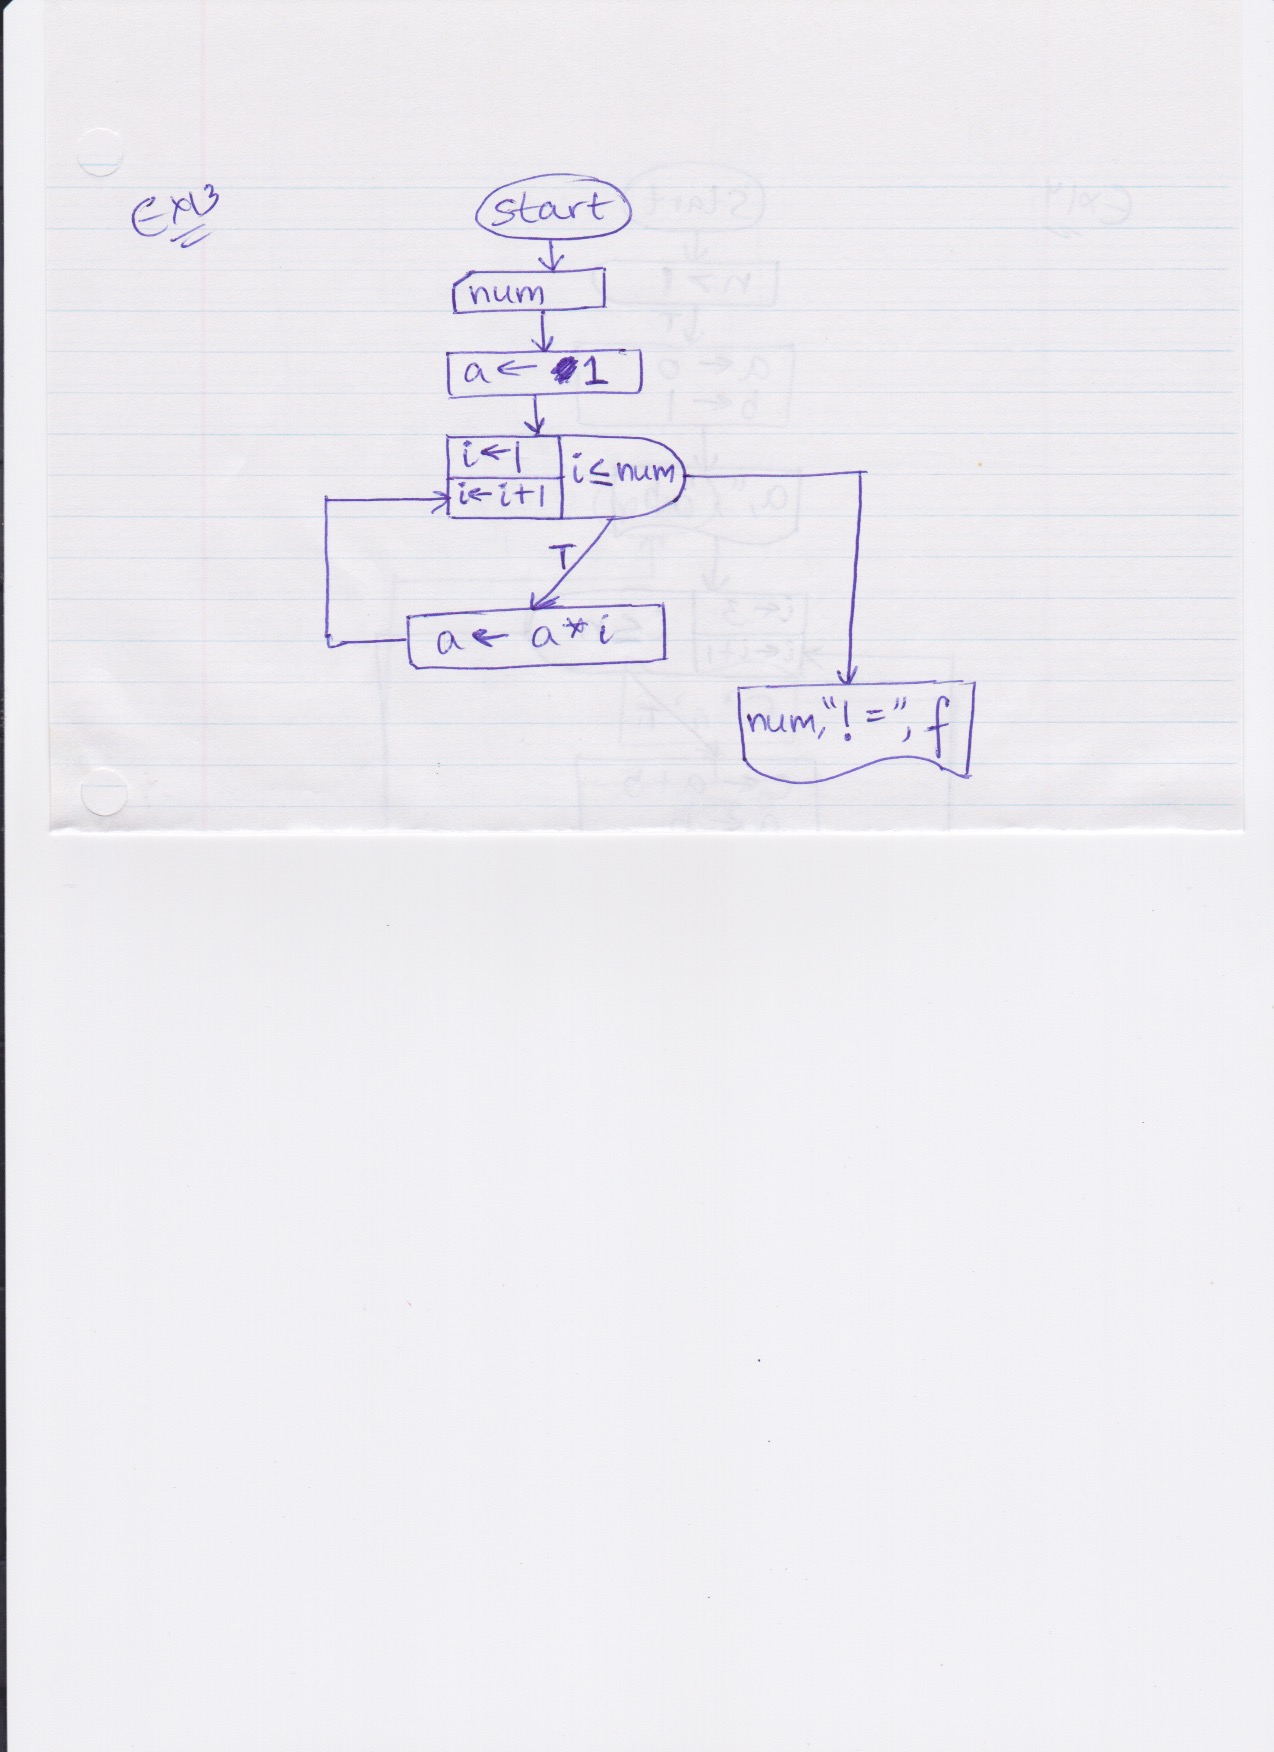 Ex13
start
num
a ← 1
i ← 1
i ← i+1
i ≤ num
T
a ← a * i
num, "! = ", f